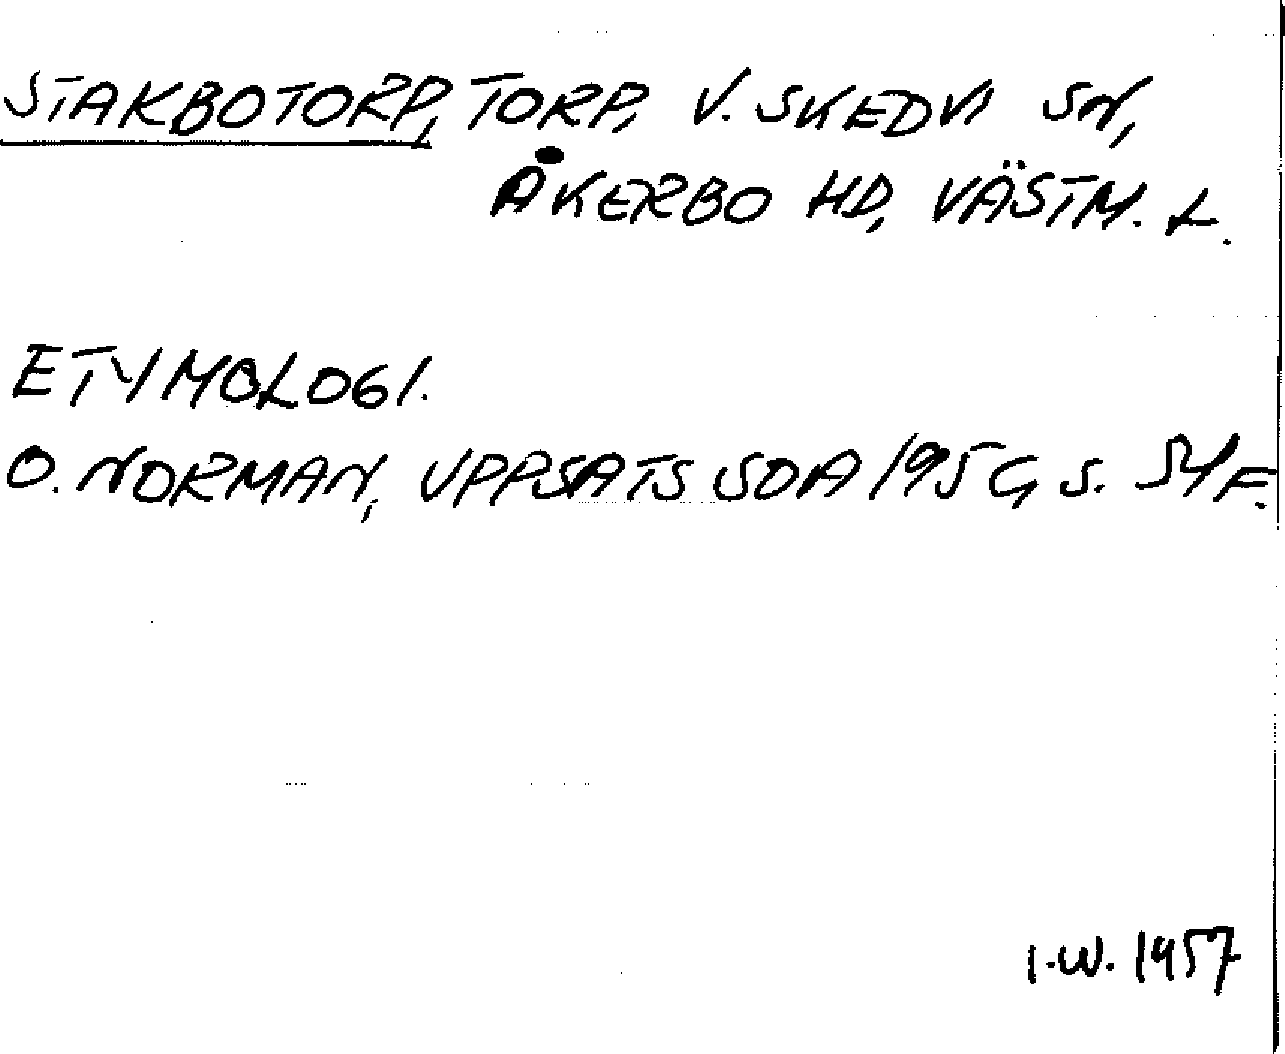 STAKBOTORP, TORP, V. SKEDVI SN,
ÅKERBO HD, VÄSTM. L.
ETYMOLOGI.
O. NORMAN, UPPSATS SOA S. F.
I.W. 1957